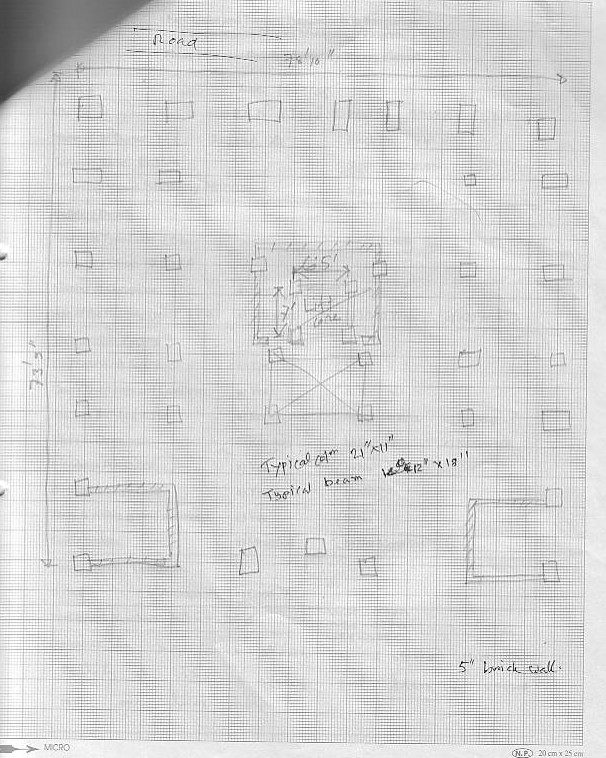 Road
78'10"
6.5'
7'
Lift
core
73'5"
Typical colm 21"x11"
Typical beam 12" x 18"
5" brick wall.
MICRO
N.P. 20 cm x 25 cm